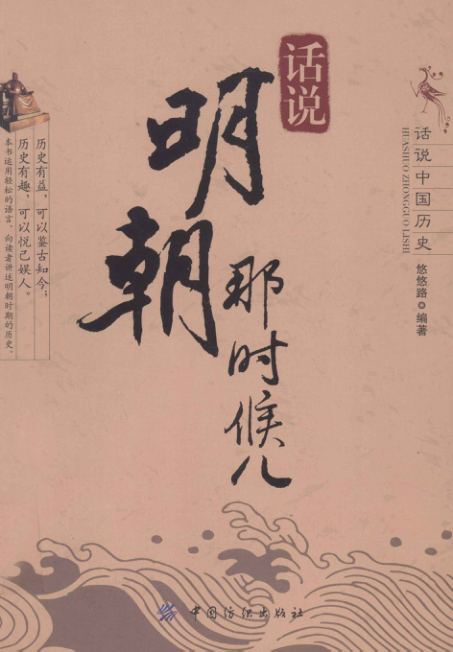 话说
明朝
那时候儿
话说中国历史
HUASHUO ZHONGGUO LISHI
悠悠路 编著
历史有益，可以鉴古知今；
历史有趣，可以悦己娱人。
本书运用轻松的语言，向读者讲述明朝时期的历史。
中国纺织出版社